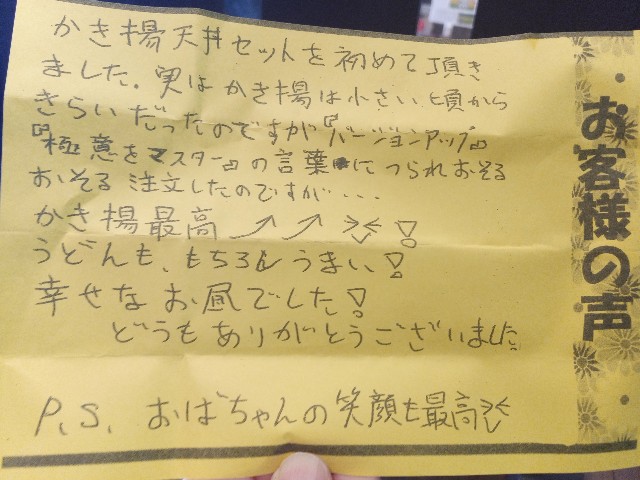 お客様の声
かき揚天丼セットを初めて頂き
ました。実はかき揚は小さい頃から
きらいだったのですが『バージョンアップ』
『極意をマスター』の言葉につられおそる
おそる注文したのですが・・・
かき揚最高↗↗！
うどんも、もちろんうまい！
幸せなお昼でした！
どうもありがとうございました。
P.S. おばちゃんの笑顔も最高